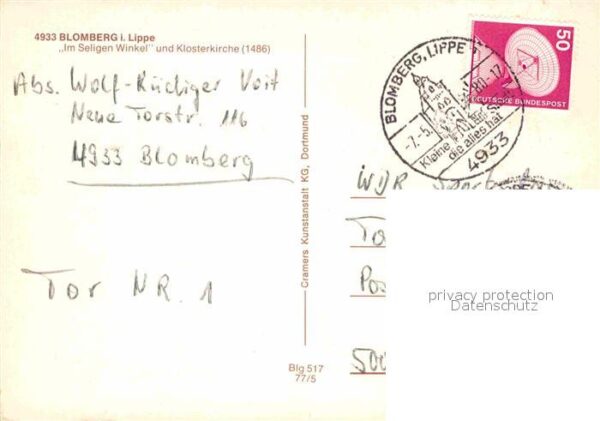 4933 BLOMBERG i. Lippe
„Im Seligen Winkel" und Klosterkirche (1486)
Abs. Wolf-Rüdiger Voit
Neue Torstr. 116
4933 Blomberg
TOR NR. 1
Cramers Kunstanstalt KG, Dortmund
Blg 517
77/5
BLOMBERG, LIPPE 1
-7.-5. 80-17
Kleine
die alles hat
4933
50
DEUTSCHE BUNDESPOST
WDR
To
Pos
500
privacy protection
Datenschutz